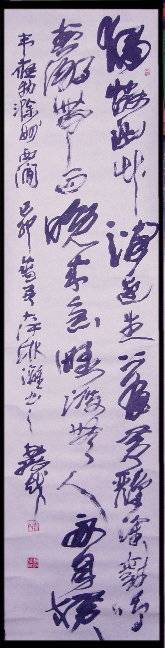 獨憐幽草澗邊生上有黃鸝深樹鳴
春潮帶雨晚來急野渡無人舟自橫
韋應物滁州西澗 己卯